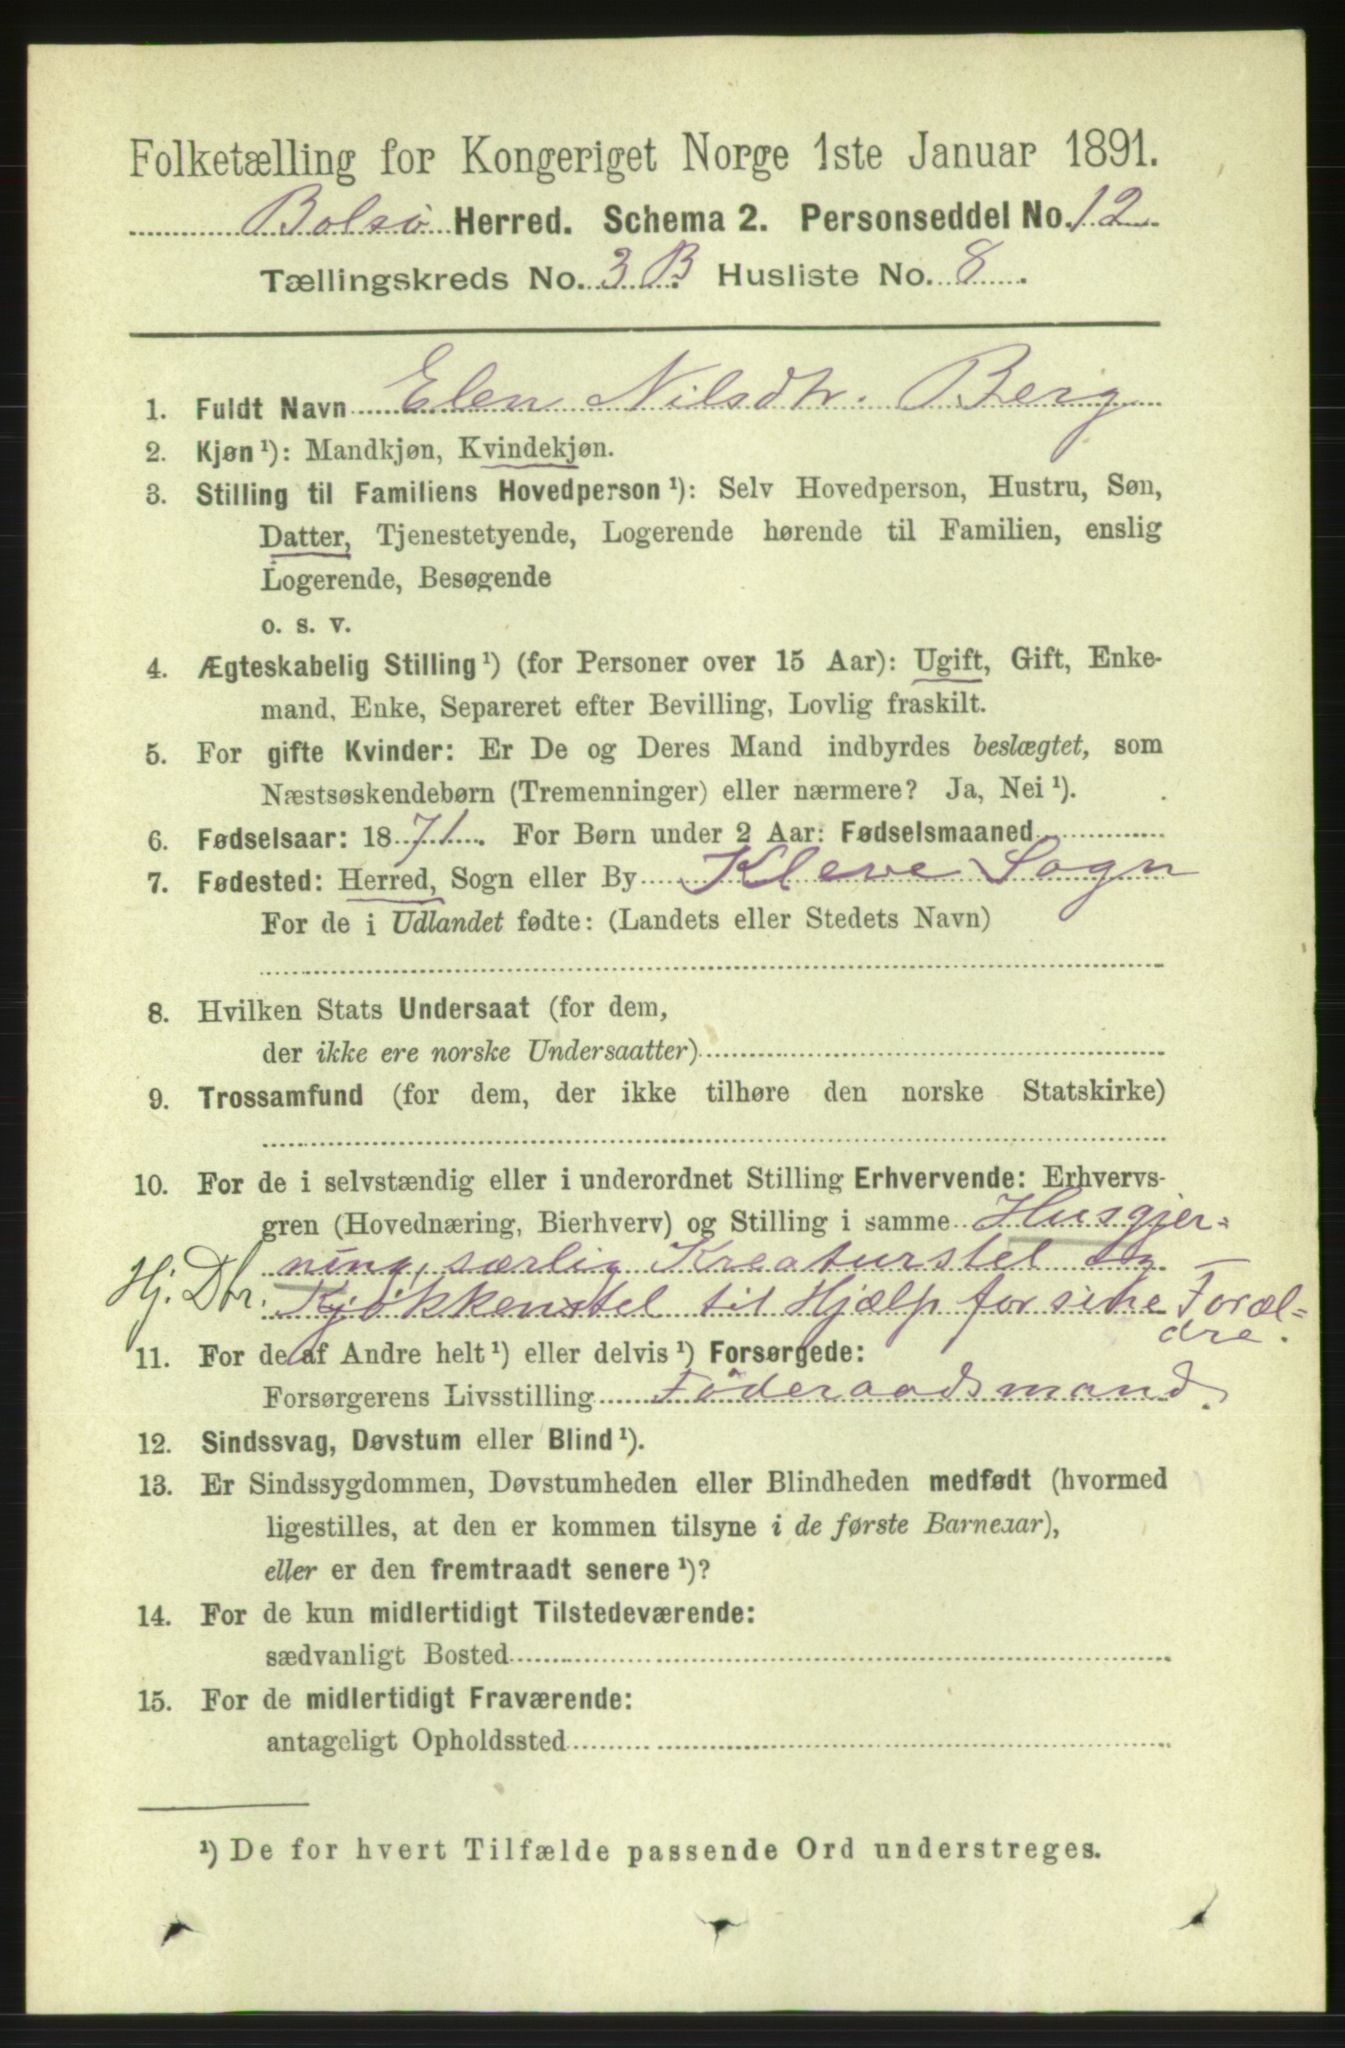 Folketælling for Kongeriget Norge 1ste Januar 1891.
Bolsø Herred. Schema 2. Personseddel No. 12
Tællingskreds No. 3 B. Husliste No. 8.
1. Fuldt Navn Elen Nilsdtr. Berg
2. Kjøn ¹): Mandkjøn, Kvindekjøn.
3. Stilling til Familiens Hovedperson ¹): Selv Hovedperson, Hustru, Søn,
Datter, Tjenestetyende, Logerende hørende til Familien, enslig
Logerende, Besøgende
o. s. v.
4. Ægteskabelig Stilling ¹) (for Personer over 15 Aar): Ugift, Gift, Enke-
mand, Enke, Separeret efter Bevilling, Lovlig fraskilt.
5. For gifte Kvinder: Er De og Deres Mand indbyrdes beslægtet, som
Næstsøskendebørn (Tremenninger) eller nærmere? Ja, Nei ¹).
6. Fødselsaar: 1871. For Børn under 2 Aar: Fødselsmaaned
7. Fødested: Herred, Sogn eller By Kleve Sogn
For de i Udlandet fødte: (Landets eller Stedets Navn)
8. Hvilken Stats Undersaat (for dem,
der ikke ere norske Undersaatter)
9. Trossamfund (for dem, der ikke tilhøre den norske Statskirke)
10. For de i selvstændig eller i underordnet Stilling Erhvervende: Erhvervs-
gren (Hovednæring, Bierhverv) og Stilling i samme Husgjer-
ning, særlig Kreaturstel og
Hj. Dtr. Kjøkkenstel til Hjælp for sine Foræl-
dre.
11. For de af Andre helt ¹) eller delvis ¹) Forsørgede:
Forsørgerens Livsstilling Föderaadsmand.
12. Sindssvag, Døvstum eller Blind ¹).
13. Er Sindssygdommen, Døvstumheden eller Blindheden medfødt (hvormed
ligestilles, at den er kommen tilsyne i de første Barneaar),
eller er den fremtraadt senere ¹)?
14. For de kun midlertidigt Tilstedeværende:
sædvanligt Bosted
15. For de midlertidigt Fraværende:
antageligt Opholdssted
¹) De for hvert Tilfælde passende Ord understreges.